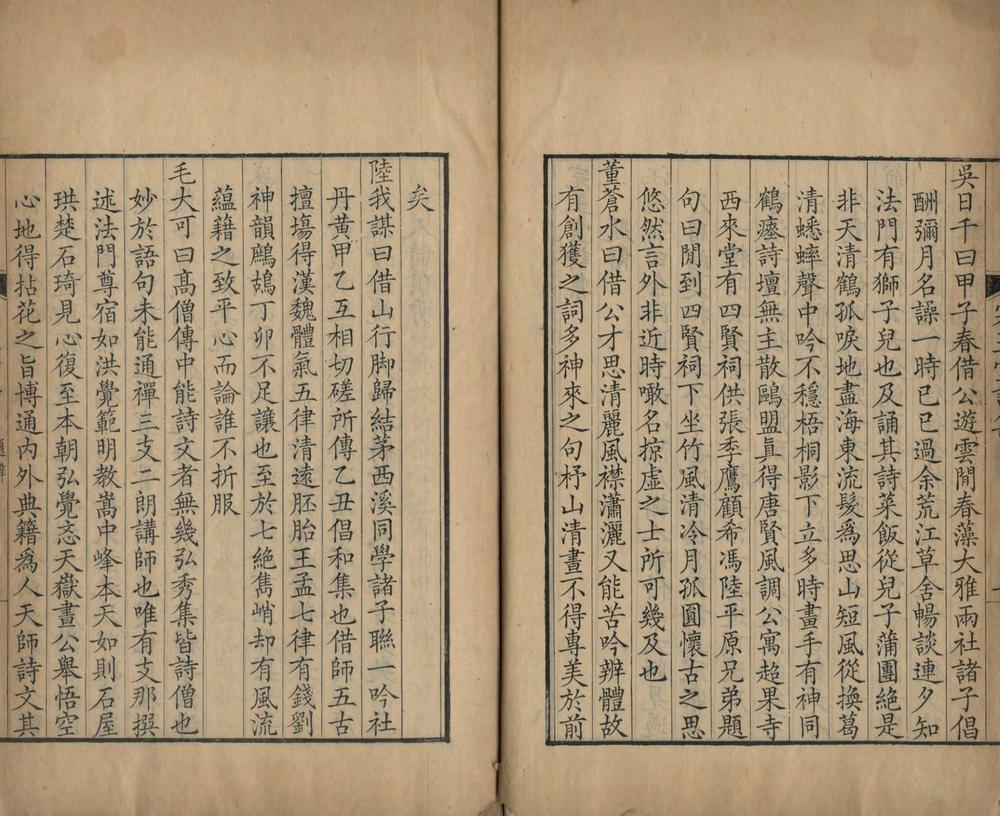 吳日千曰甲子春借公遊雲閒春藻大雅兩社諸子倡
酬彌月名譟一時已巳過余荒江草舍暢談連夕知
法門有獅子兒也及誦其詩菜飯從兒子蒲團絕是
非天清鶴孤唳地盡海東流髮爲思山短風從換葛
清蟋蟀聲中吟不穩梧桐影下立多時畫手有神同
鶴瘗詩壇無主散鷗盟眞得唐賢風調公寓超果寺
西來堂有四賢祠供張季鷹顧希馮陸平原兄弟題
句曰閒到四賢祠下坐竹風清冷月孤圓懷古之思
悠然言外非近時噉名掠虛之士所可幾及也
董蒼水曰借公才思清麗風襟瀟灑又能苦吟辨體故
有創獲之詞多神來之句杼山清晝不得專美於前
矣
陸我謀曰借山行脚歸結茅西溪同學諸子聯一吟社
丹黃甲乙互相切磋所傳乙丑倡和集也借師五古
擅塲得漢魏體氣五律清遠胚胎王孟七律有錢劉
神韻鷓鴣丁卯不足讓也至於七絕雋峭却有風流
蘊藉之致平心而論誰不折服
毛大可曰高僧傳中能詩文者無幾弘秀集皆詩僧也
妙於語句未能通禪三支二朗講師也唯有支那撰
述法門尊宿如洪覺範明教嵩中峰本天如則石屋
珙楚石琦見心復至本朝弘覺忞天嶽晝公舉悟空
心地得拈花之旨博通內外典籍爲人天師詩文其